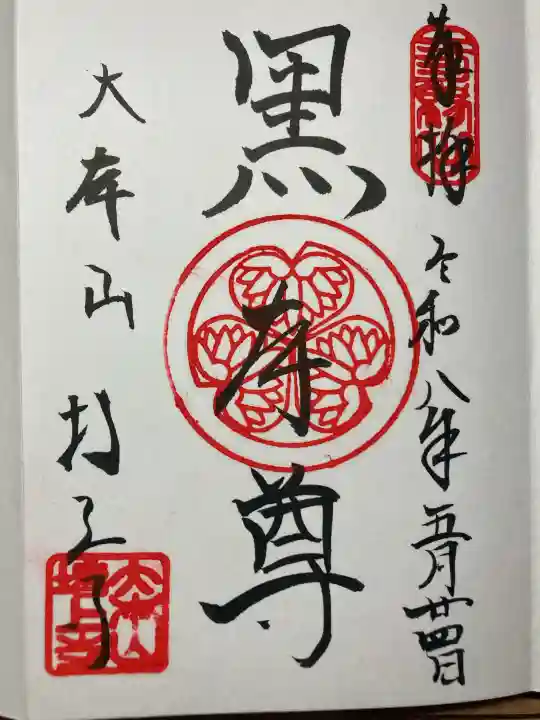 奉拝
令和八年五月廿四日
黒本尊
大本山
増上寺